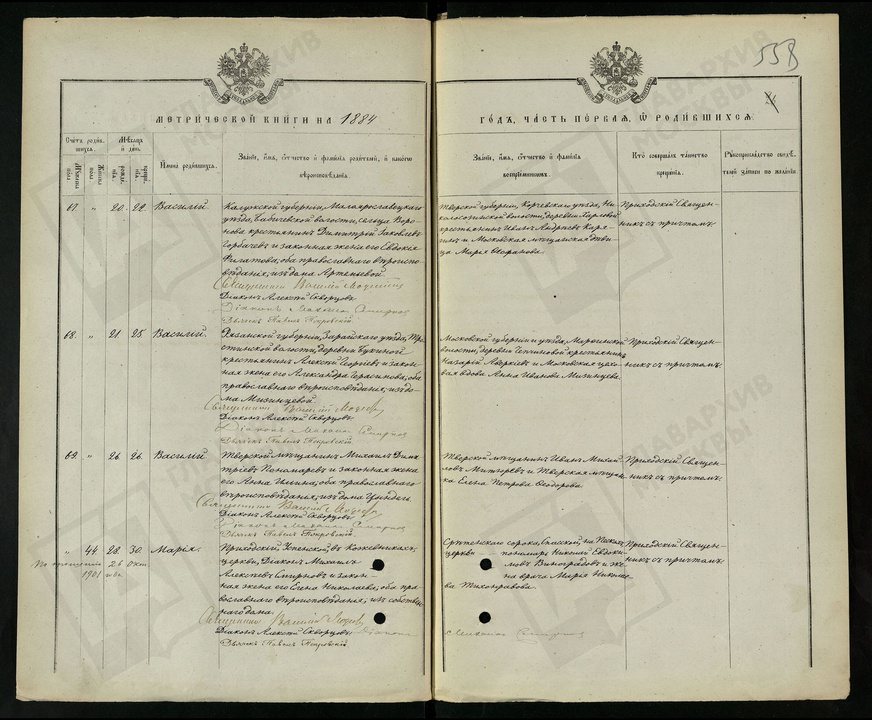 558
МЕТРИЧЕСКОЙ КНИГИ НА 1884
ГОДЪ, ЧАСТЬ ПЕРВАЯ, Ѡ РОДИВШИХСЯ.
Счетъ родив-
шихся.
Мужеска
пола
Женска
пола
Мѣсяцъ
и день.
рожде-
нія.
креще-
нія.
Имена родившихся.
Званіе, имя, отчество и фамилія родителей, и какого
вѣроисповѣданія.
Званіе, имя, отчество и фамилія
воспріемниковъ.
Кто совершалъ таинство
крещенія.
Рукоприкладство свидѣ-
телей записи по желанію
67. „ 20. 22. Василій.
Калужской губерніи, Малоярославецкаго
уѣзда, Бабичевской волости, сельца Воро-
нова крестьянинъ Димитрій Яковлевъ
Горбачевъ и законная жена его Евдокія
Филатова; оба православнаго вѣроиспо-
вѣданія; изъ дома Артемьевой
Священникъ Василій
Діаконъ Алексѣй Скворцовъ
Діаконъ Михаилъ Смирнов
Дьячекъ Павелъ Покровскій.
Тверской губерніи, Корчевскаго уѣзда, Ни-
волости, деревни Харловой
крестьянинъ Иванъ Андреевъ Каря-
гинъ и Московская мѣщанская дѣви-
ца Марія
Приходскій Священ-
никъ съ причтомъ.
68. „ 21. 25. Василій.
Рязанской губерніи, Зарайскаго уѣзда,
волости, деревни
крестьянинъ Алексѣй Георгіевъ и закон-
ная жена его Александра Герасимова; оба
православнаго вѣроисповѣданія; изъ до-
ма Мизинцевой.
Священникъ Василій
Діаконъ Алексѣй Скворцовъ
Діаконъ Михаилъ Смирнов
Дьячекъ Павелъ Покровскій.
Московской губерніи и уѣзда,
волости, деревни крестьянинъ
Назарій Аверкіевъ и Московская цехо-
вая вдова Анна Иванова Мизинцева.
Приходскій Священ-
никъ съ причтомъ.
69. „ 26. 26. Василій.
Тверской мѣщанинъ Михаилъ Дими-
тріевъ Пономаревъ и законная жена
его Анна Ильина; оба православнаго
вѣроисповѣданія; изъ дома
Священникъ Василій
Діаконъ Алексѣй Скворцовъ
Діаконъ Михаилъ Смирнов
Дьячекъ Павелъ Покровскій.
Тверской мѣщанинъ Иванъ Михай-
ловъ и Тверская мѣщан-
ка Елена Петрова Ѳеодорова.
Приходскій Священ-
никъ съ причтомъ.
„ 44. 28. 30. Марія.
1901
26 окт
Приходскій Успенской, въ Кожевникахъ,
церкви, Діаконъ Михаилъ
Алексѣевъ Смирновъ и закон-
ная жена его Елена Николаева; оба пра-
вославнаго вѣроисповѣданія; изъ собствен-
наго дома.
Священникъ Василій
Діаконъ Алексѣй Скворцовъ Діаконъ
Дьячекъ Павелъ Покровскій
Срѣтенскаго сорока, Спасской, на Пескахъ,
церкви пономарь Николай Евдоки-
мовъ Виноградовъ и же-
на врача Марія Николае-
ва Тихонравова.
Михаилъ Смирнов
Приходскій Священ-
никъ съ причтомъ.
ГЛАВАРХИВ
МОСКВЫ